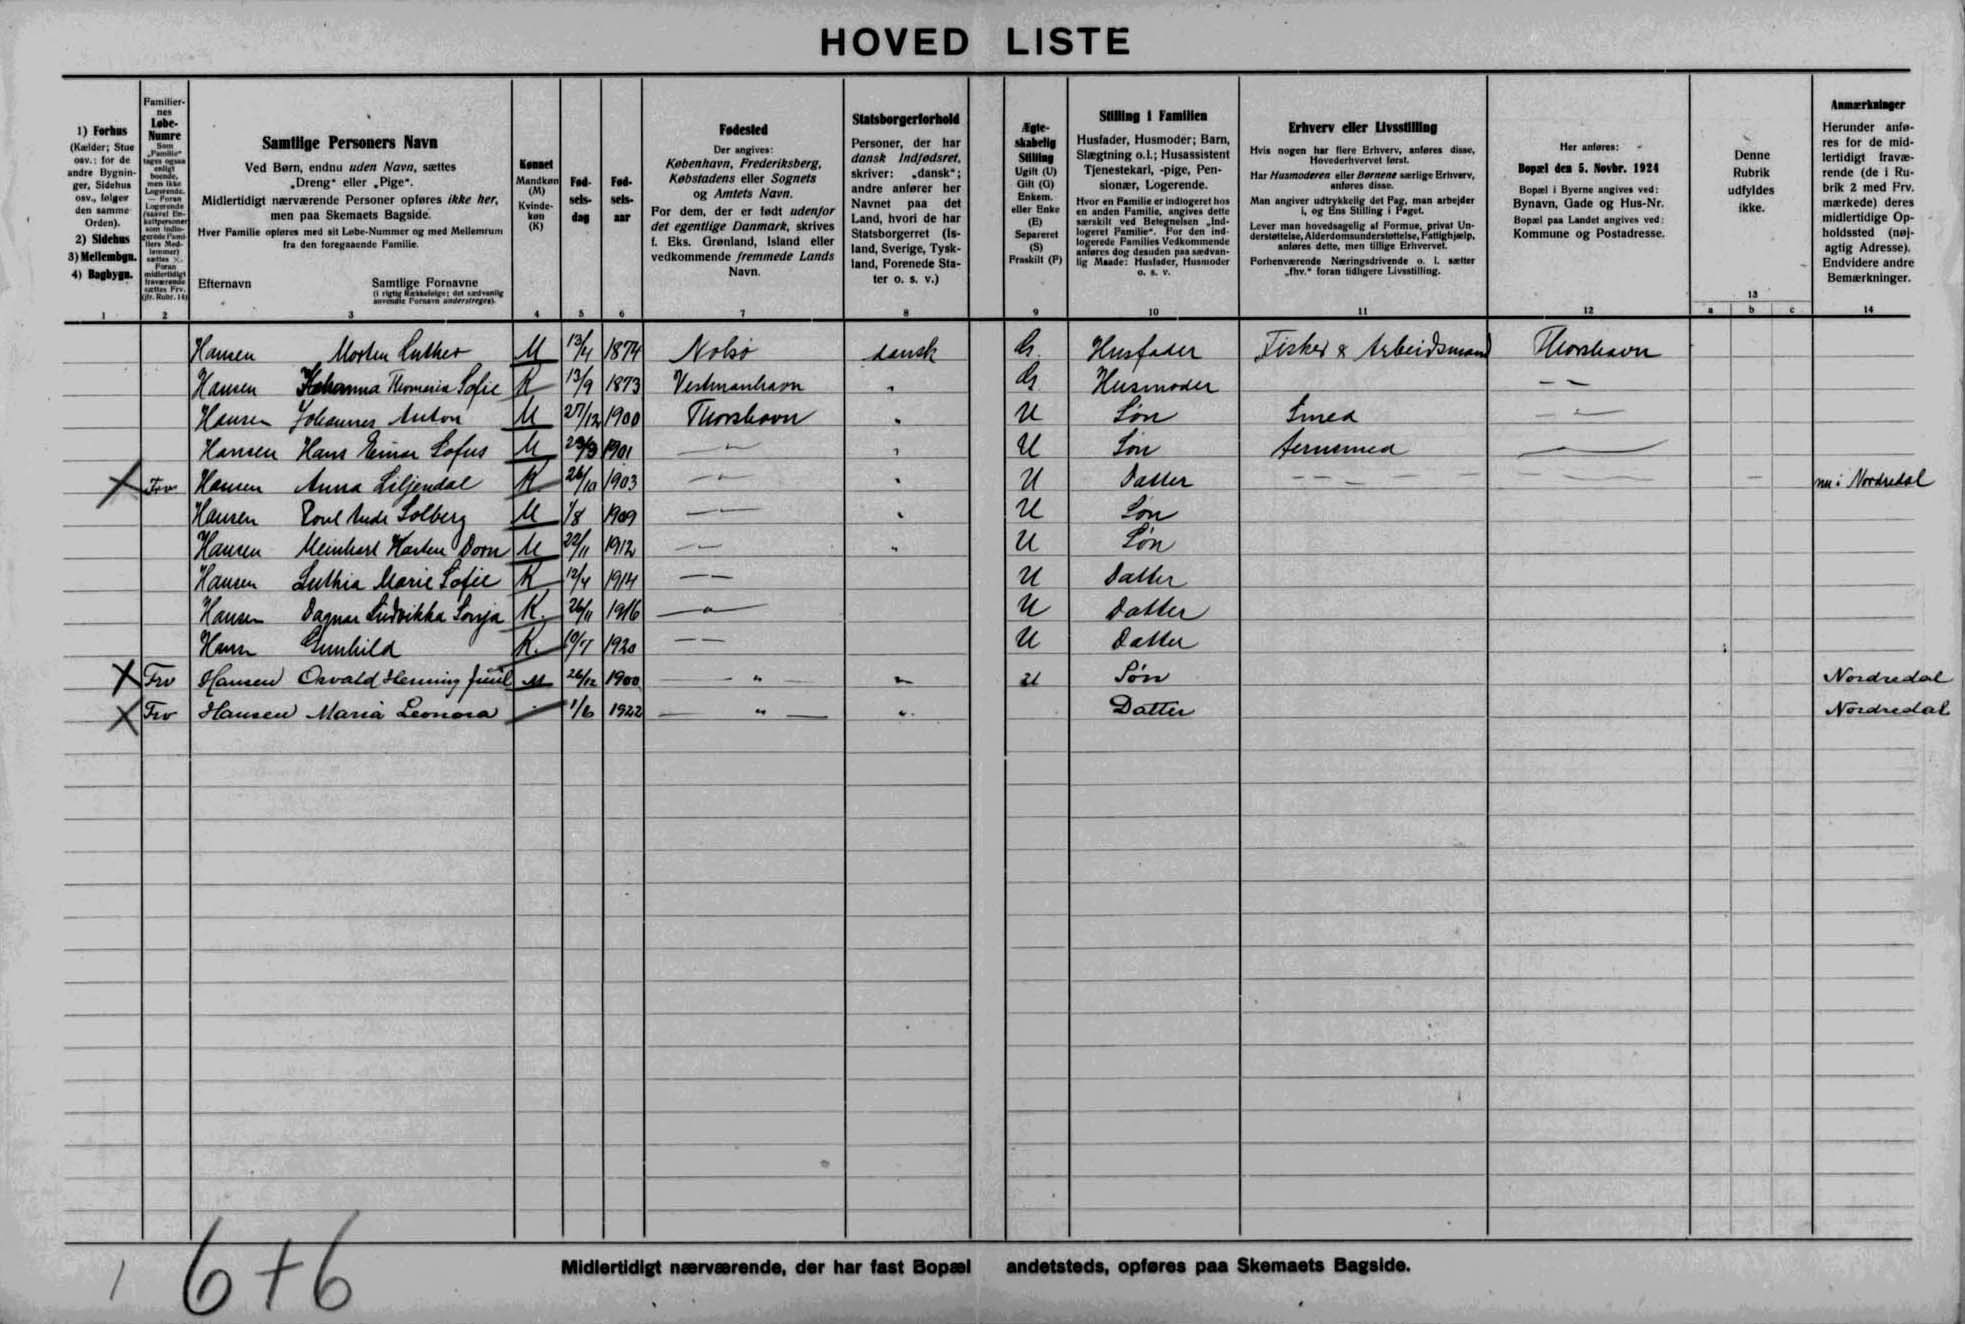 HOVED LISTE
1) Forhus
(Kælder; Stue
osv.: for de
andre Bygnin-
ger, Sidehus
osv., følger
den samme
Orden).
2) Sidehus
3) Mellembgn.
4) Bagbygn.
Familier-
nes
Løbe-
Numre
Som
„Familie"
tages ogsaa
enligt
boende,
men ikke
Logerende.
— Foran
Logerende
(saavel En-
keltpersoner
som indlo-
gerede Fami-
liers Med-
lemmer)
sættes ×.
Foran
midlertidigt
fraværende
sættes Frv.
(jfr. Rubr. 14)
Samtlige Personers Navn
Ved Børn, endnu uden Navn, sættes
„Dreng" eller „Pige".
Midlertidigt nærværende Personer opføres ikke her,
men paa Skemaets Bagside.
Hver Familie opføres med sit Løbe-Nummer og med Mellemrum
fra den foregaaende Familie.
Efternavn Samtlige Fornavne
(i rigtig Rækkefølge; det sædvanlig
anvendte Fornavn understreges).
Kønnet
Mandkøn
(M)
Kvinde-
køn
(K)
Fød-
sels-
dag
Fød-
sels-
aar
Fødested
Der angives:
København, Frederiksberg,
Købstadens eller Sognets
og Amtets Navn.
For dem, der er født udenfor
det egentlige Danmark, skrives
f. Eks. Grønland, Island eller
vedkommende fremmede Lands
Navn.
Statsborgerforhold
Personer, der har
dansk Indfødsret,
skriver: „dansk";
andre anfører her
Navnet paa det
Land, hvori de har
Statsborgerret (Is-
land, Sverige, Tysk-
land, Forenede Sta-
ter o. s. v.)
Ægte-
skabelig
Stilling
Ugift (U)
Gift (G)
Enkem.
eller Enke
(E)
Separeret
(S)
Fraskilt (F)
Stilling i Familien
Husfader, Husmoder; Barn,
Slægtning o.l.; Husassistent
Tjenestekarl, -pige, Pen-
sionær, Logerende.
Hvor en Familie er indlogeret hos
en anden Familie, angives dette
særskilt ved Betegnelsen „Ind-
logeret Familie". For den ind-
logerede Families Vedkommende
anføres dog desuden paa sædvan-
lig Maade: Husfader, Husmoder
o. s. v.
Erhverv eller Livsstilling
Hvis nogen har flere Erhverv, anføres disse,
Hovederhvervet først.
Har Husmoderen eller Børnene særlige Erhverv,
anføres disse.
Man angiver udtrykkelig det Fag, man arbejder
i, og Ens Stilling i Faget.
Lever man hovedsagelig af Formue, privat Un-
derstøttelse, Alderdomsunderstøttelse, Fattighjælp,
anføres dette, men tillige Erhvervet.
Forhenværende Næringsdrivende o. l. sætter
„fhv." foran tidligere Livsstilling.
Her anføres:
Bopæl den 5. Novbr. 1924
Bopæl i Byerne angives ved:
Bynavn, Gade og Hus-Nr.
Bopæl paa Landet angives ved:
Kommune og Postadresse.
Denne
Rubrik
udfyldes
ikke.
Anmærkninger
Herunder anfø-
res for de mid-
lertidigt fravæ-
rende (de i Ru-
brik 2 med Frv.
mærkede) deres
midlertidige Op-
holdssted (nøj-
agtig Adresse).
Endvidere andre
Bemærkninger.
1 2 3 4 5 6 7 8 9 10 11 12 13 a b c 14
Hansen Morten Luther M 13/4 1874 Nolsø dansk G. Husfader Fisker & Arbeidsmand Thorshavn
Hansen Johanna Thomasia Sofie K 13/9 1873 Vestmanhavn " G Husmoder — " —
Hansen Johannes Anton M 27/12 1900 Thorshavn " U Søn Smed — " —
Hansen Hans Einar Sofus M 1901 — " — " U Søn — " —
× Frv Hansen Anna Liljendal K. 26/10 1903 — " — " U Datter nu i Nordredal
Hansen Solberg M 1/8 1909 — " — " U Søn
Hansen Meinhart Karsten Dorn M 22/11 1912 — " — " U Søn
Hansen Luthia Marie Sofie K 12/4 1914 — " — U Datter
Hansen Dagmar Ludvikka Sonja K. 26/11 1916 — " — U Datter
Gunhild K. 1920 — " — U Datter
× Frv Hansen Osvald Henning Juul M 26/12 1900 — " — " U Søn Nordredal
× Frv Hansen Maria Leonora 1/6 1922 — " — " Datter Nordredal
Midlertidigt nærværende, der har fast Bopæl andetsteds, opføres paa Skemaets Bagside.
1 6+6